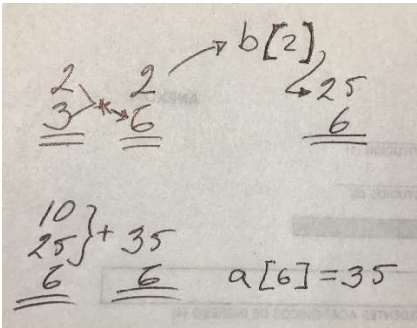 2 2 b[2]
3 * 6 25
6
10
25 } + 35
6 6 a[6] = 35